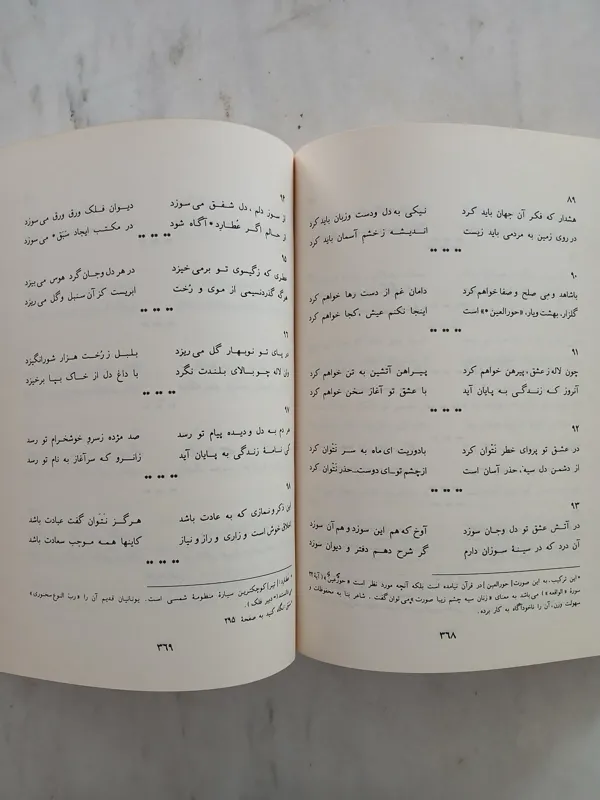 ۸۹
هشدار که فکر آن جهان باید کرد نیکی به دل ودست وزبان باید کرد
در روی زمین به مردمی باید زیست اندیشه ز خشم آسمان باید کرد
***
۹۰
باشاهد و می صلح و صفا خواهم کرد دامان غم از دست رها خواهم کرد
گلزار، بهشت ویار، «حورالعین*» است اینجا نکنم عیش، کجا خواهم کرد
***
۹۱
چون لاله ز عشق، پیرهن خواهم کرد پیراهن آتشین به تن خواهم کرد
آنروز که زندگی به پایان آید با عشق تو آغاز سخن خواهم کرد
***
۹۲
در عشق تو پروای خطر نتوان کرد بادوریت ای ماه به سر نتوان کرد
از دشمن دل سیه، حذر آسان است ازچشم تو، ای دوست، حذر نتوان کرد
***
۹۳
در آتش عشق تو دل وجان سوزد آوخ که هم این سوزد و هم آن سوزد
آن درد که در سینهٔ سوزان دارم گر شرح دهم دفتر و دیوان سوزد
*این ترکیب، به این صورت [حورالعین] در قرآن نیامده است بلکه آنچه مورد نظر است «حورٌعینٌ» (آیهٔ ۲۲
سورهٔ «الواقعه») می‌باشد به معنای «زنان سیه چشم زیبا صورت» ومی‌توان گفت، شاعر بنا به محفوظات و
سهولت وزن، آن را ناخودآگاه به کار برده.
۳۶۸
۹۴
از سوز دلم، دل شفق می سوزد دیوان فلک ورق ورق می سوزد
از حالم اگر عُطارد* آگاه شود در مکتب ایجاد سَبَق* می سوزد
***
۹۵
عطری که زگیسوی تو برمی خیزد در هر دل وجان گرد هوس می بیزد
هرگه گذردنسیمی از موی و رُخت ابریست کز آن سنبل وگل می ریزد
***
۹۶
در پای تو نوبهار گل می ریزد بلبل ز رُخت هزار شورانگیزد
وان لاله چو بالای بلندت نگرد با داغ دل از خاک بپا برخیزد
***
۹۷
هر دم به دل و دیده پیام تو رسد صد مژده زسرو خوشخرام تو رسد
کی نامهٔ زندگی به پایان آید زانرو که سرآغاز به نام تو رسد
***
۹۸
ذکر و نمازی که به عادت باشد هرگز نتوان گفت عبادت باشد
اخلاق خوش است و زاری و راز و نیاز کاینها همه موجب سعادت باشد
***
عطارد: [تیر] کوچکترین سیارهٔ منظومهٔ شمسی است. یونانیان قدیم آن را «رب النوع سخنوری»
می‌دانند («دبیر فلک»).
نگاه کنید به صفحهٔ ۲۹۵
۳۶۹